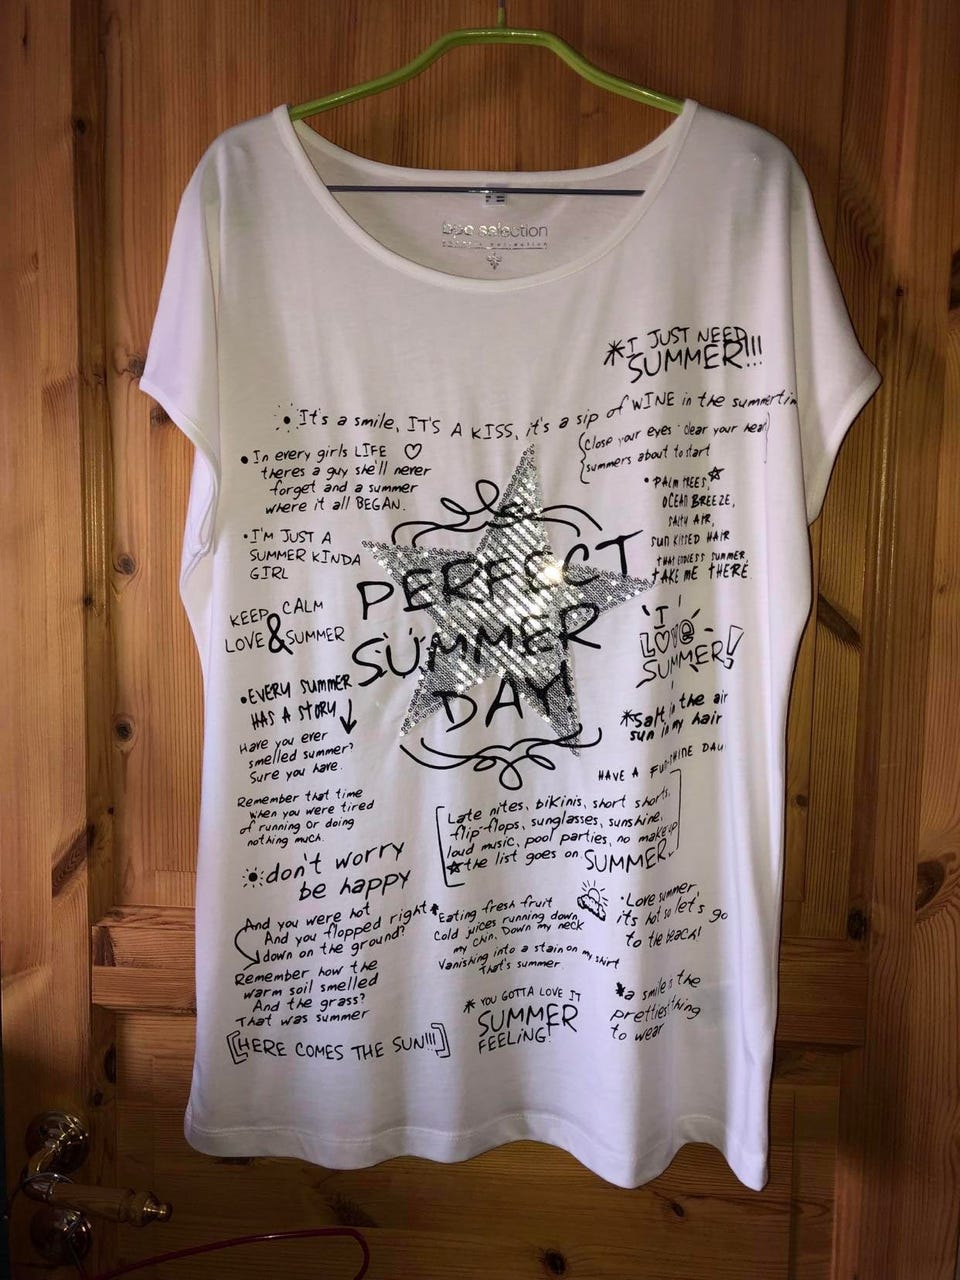 bpc selection
*I JUST NEED
SUMMER!!!
• It's a smile, IT'S A KISS, it's a sip of WINE in the summertim
(Close your eyes · clear your hear)
summers about to start
• In every girls LIFE
theres a guy she'll never
forget and a summer
where it all BEGAN.
• PALM TREES,
OCEAN BREEZE,
SALTY AIR,
SUN KISSED HAIR
THAT ENDLESS SUMMER
TAKE ME THERE
• I'M JUST A
SUMMER KINDA
GIRL
PERFECT
SUMMER
DAY!
KEEP CALM
& 
LOVE SUMMER
I
LOVE
SUMMER!
• EVERY SUMMER
HAS A STORY
Have you ever
smelled summer?
Sure you have.
*Salt in the air
sun in my hair
HAVE A FUN-SHINE DAY
Remember that time
when you were tired
of running or doing
nothing much.
[Late nites, bikinis, short shorts,
flip-flops, sunglasses, sunshine,
loud music, pool parties, no makeup
the list goes on SUMMER.]
don't worry
be happy
And you were hot
And you flopped right
down on the ground?
*Eating fresh fruit
Cold juices running down
my chin. Down my neck
Vanishing into a stain on my shirt
That's summer.
• Love summer,
its hot so let's go
to the beach!
Remember how the
warm soil smelled
And the grass?
That was summer
* YOU GOTTA LOVE IT
SUMMER
FEELING!
*a smile is the
prettiest thing
to wear
[HERE COMES THE SUN!!!]